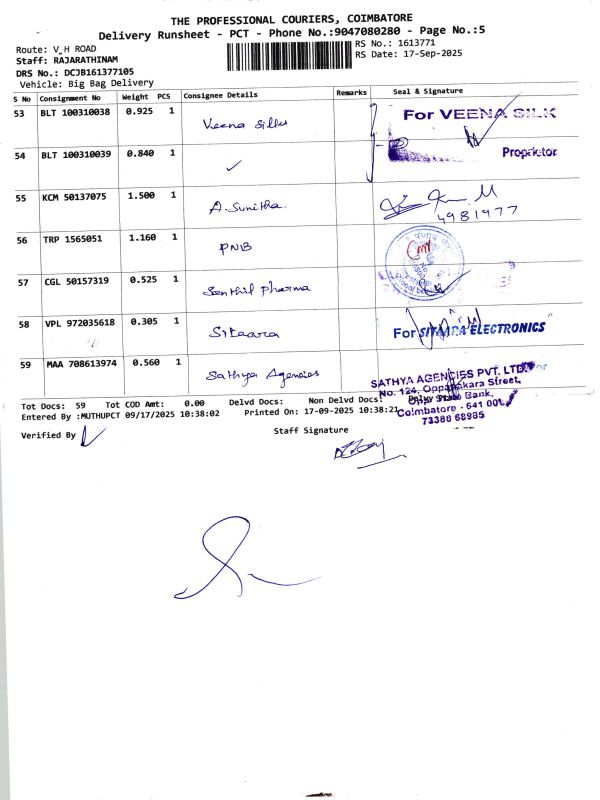 THE PROFESSIONAL COURIERS, COIMBATORE
Delivery Runsheet - PCT - Phone No.:9047080280 - Page No.:5
Route: V_H ROAD
RS No.: 1613771
Staff: RAJARATHINAM
RS Date: 17-Sep-2025
DRS No.: DCJB161377105
Vehicle: Big Bag Delivery
S No Consignment No Weight PCS Consignee Details Remarks Seal & Signature
53 BLT 100310038 0.925 1 Veena Silks For VEENA SILK
54 BLT 100310039 0.840 1 ✓ Proprietor
55 KCM 50137075 1.500 1 A. Sunitha.
4981977
56 TRP 1565051 1.160 1 PNB
57 CGL 50157319 0.525 1 Senthil Pharma
58 VPL 972035618 0.305 1 Sitaara For SITAARA ELECTRONICS
59 MAA 708613974 0.560 1 Sathya Agencies
SATHYA AGENCIES PVT. LTD.
No: 124, Oppanakara Street,
Opp: State Bank,
Coimbatore - 641 001
73388 68985
Tot Docs: 59 Tot COD Amt: 0.00 Delvd Docs: Non Delvd Docs:
Entered By :MUTHUPCT 09/17/2025 10:38:02 Printed On: 17-09-2025 10:38:21
Verified By
Staff Signature